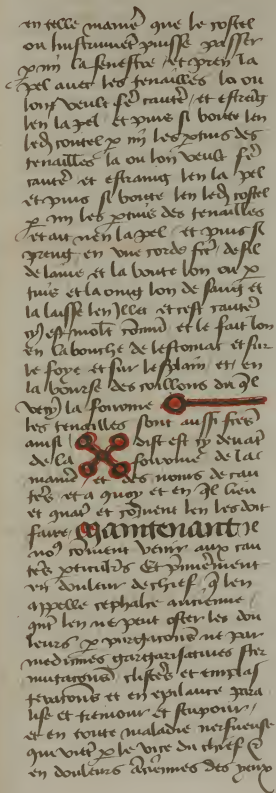 en telle manier que le costel
ou Instrument puisse passer
p mi la fenestre et pren la
pel avec les tenailles la ou
lon veult fer cauter et estreig
len la pel et puis si boute len
led coutel p mi les ptuis des
tenailles la ou lon veult fer
cauter et estraing len la pel
et puis si boute len led costel
p mi les ptuis des tenailles
et la pel et puis si
preng en une corde de fil
de laine et la boute lon ou p
tuis et la oing lon de saing et
la laisse len Illec et cest cauter
cy est molt comun et le fait lon
en la bouche de lestomac et sur
le foye et sur lesplain et en
la bourse des coullons du ql
vecy la fourme
les tenailles sont aussi fctes
ainsi dist est cy devat
de la fourme de la
maner et des noms de cau
ters et a quoy et en ql lieu
et quat et coment len les doit
faire Maintenant Il
nos convient venir aux cau
ters pticuliers Et premierement
en douleur de chief q len
appelle cephalee ancienne
qnt len ne peut oster les dou
leurs p purgacions ne par
medicines gargarisatives ster
nutacions clisters et emplas
et en epilance para
lise et tremour et stupour
et en toute maladie nerfueuse
qui vient p le vice du chief Et
en douleurs anciennes des yeux